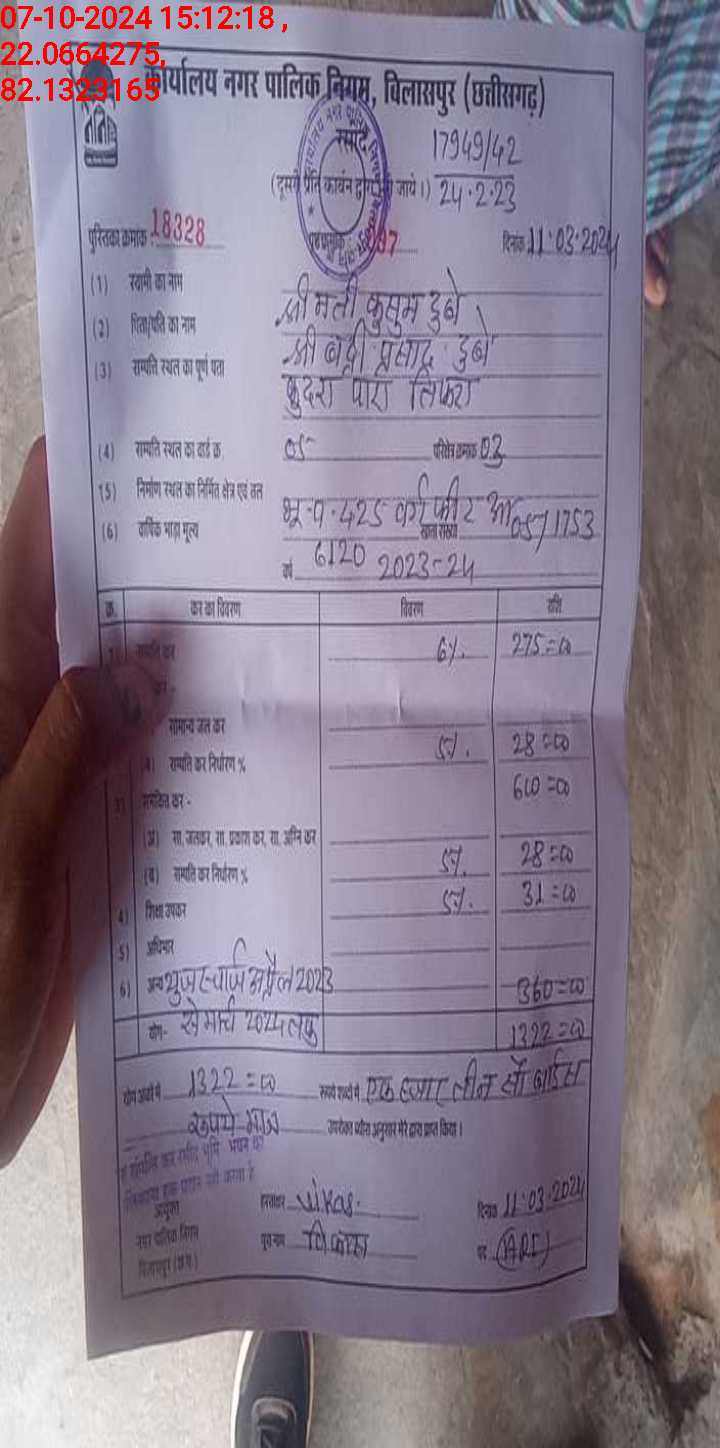 07-10-2024 15:12:18 ,
22.0664275,
82.1323165
कार्यालय नगर पालिक निगम, बिलासपुर (छत्तीसगढ़)
17949/42
(दूसरी प्रति कार्बन द्वारा की जाये।) 24.2.23
पुस्तिका क्रमांक 18328 दिनांक 11.03.2024
(1) स्वामी का नाम श्रीमती कुसुम दुबे
(2) पिता/पति का नाम श्री बद्री प्रसाद दुबे
(3) सम्पत्ति स्थल का पूर्ण पता कुदरा पारा तिफरा
(4) सम्पत्ति स्थल का वार्ड क्र. 05 परिक्षेत्र क्रमांक 03
(5) निर्माण स्थल का निर्मित क्षेत्र एवं तल भू.प.425 वर्ग फीट आ
(6) वार्षिक भाड़ा मूल्य 0571753
वर्ष 6120 2023-24
क्र. कर का विवरण विवरण राशि
सम्पत्ति कर 6%. 275=00
कर -
सामान्य जल कर
सम्पत्ति कर निर्धारण % 5%. 28=00
3) समेकित कर - 600=00
(अ) सा. जलकर, सा. प्रकाश कर, सा. अग्नि कर
(ब) सम्पत्ति कर निर्धारण % 5%. 28=00
4) शिक्षा उपकर 5%. 31=00
5) अधिभार
6) अन्य युजर चार्ज अप्रैल 2023 360=00
योग- से मार्च 2024 तक 1322=00
योग अंकों में 1322=00 रूपये शब्दों में एक हजार तीन सौ बाईस
रूपये मात्र उपरोक्त ब्यौरा अनुसार मेरे द्वारा प्राप्त किया।
आयुक्त हस्ताक्षर Vikas. दिनांक 11.03.2024
नगर पालिक निगम पूरा नाम विकास पद (ARI)
बिलासपुर (छ.ग.)